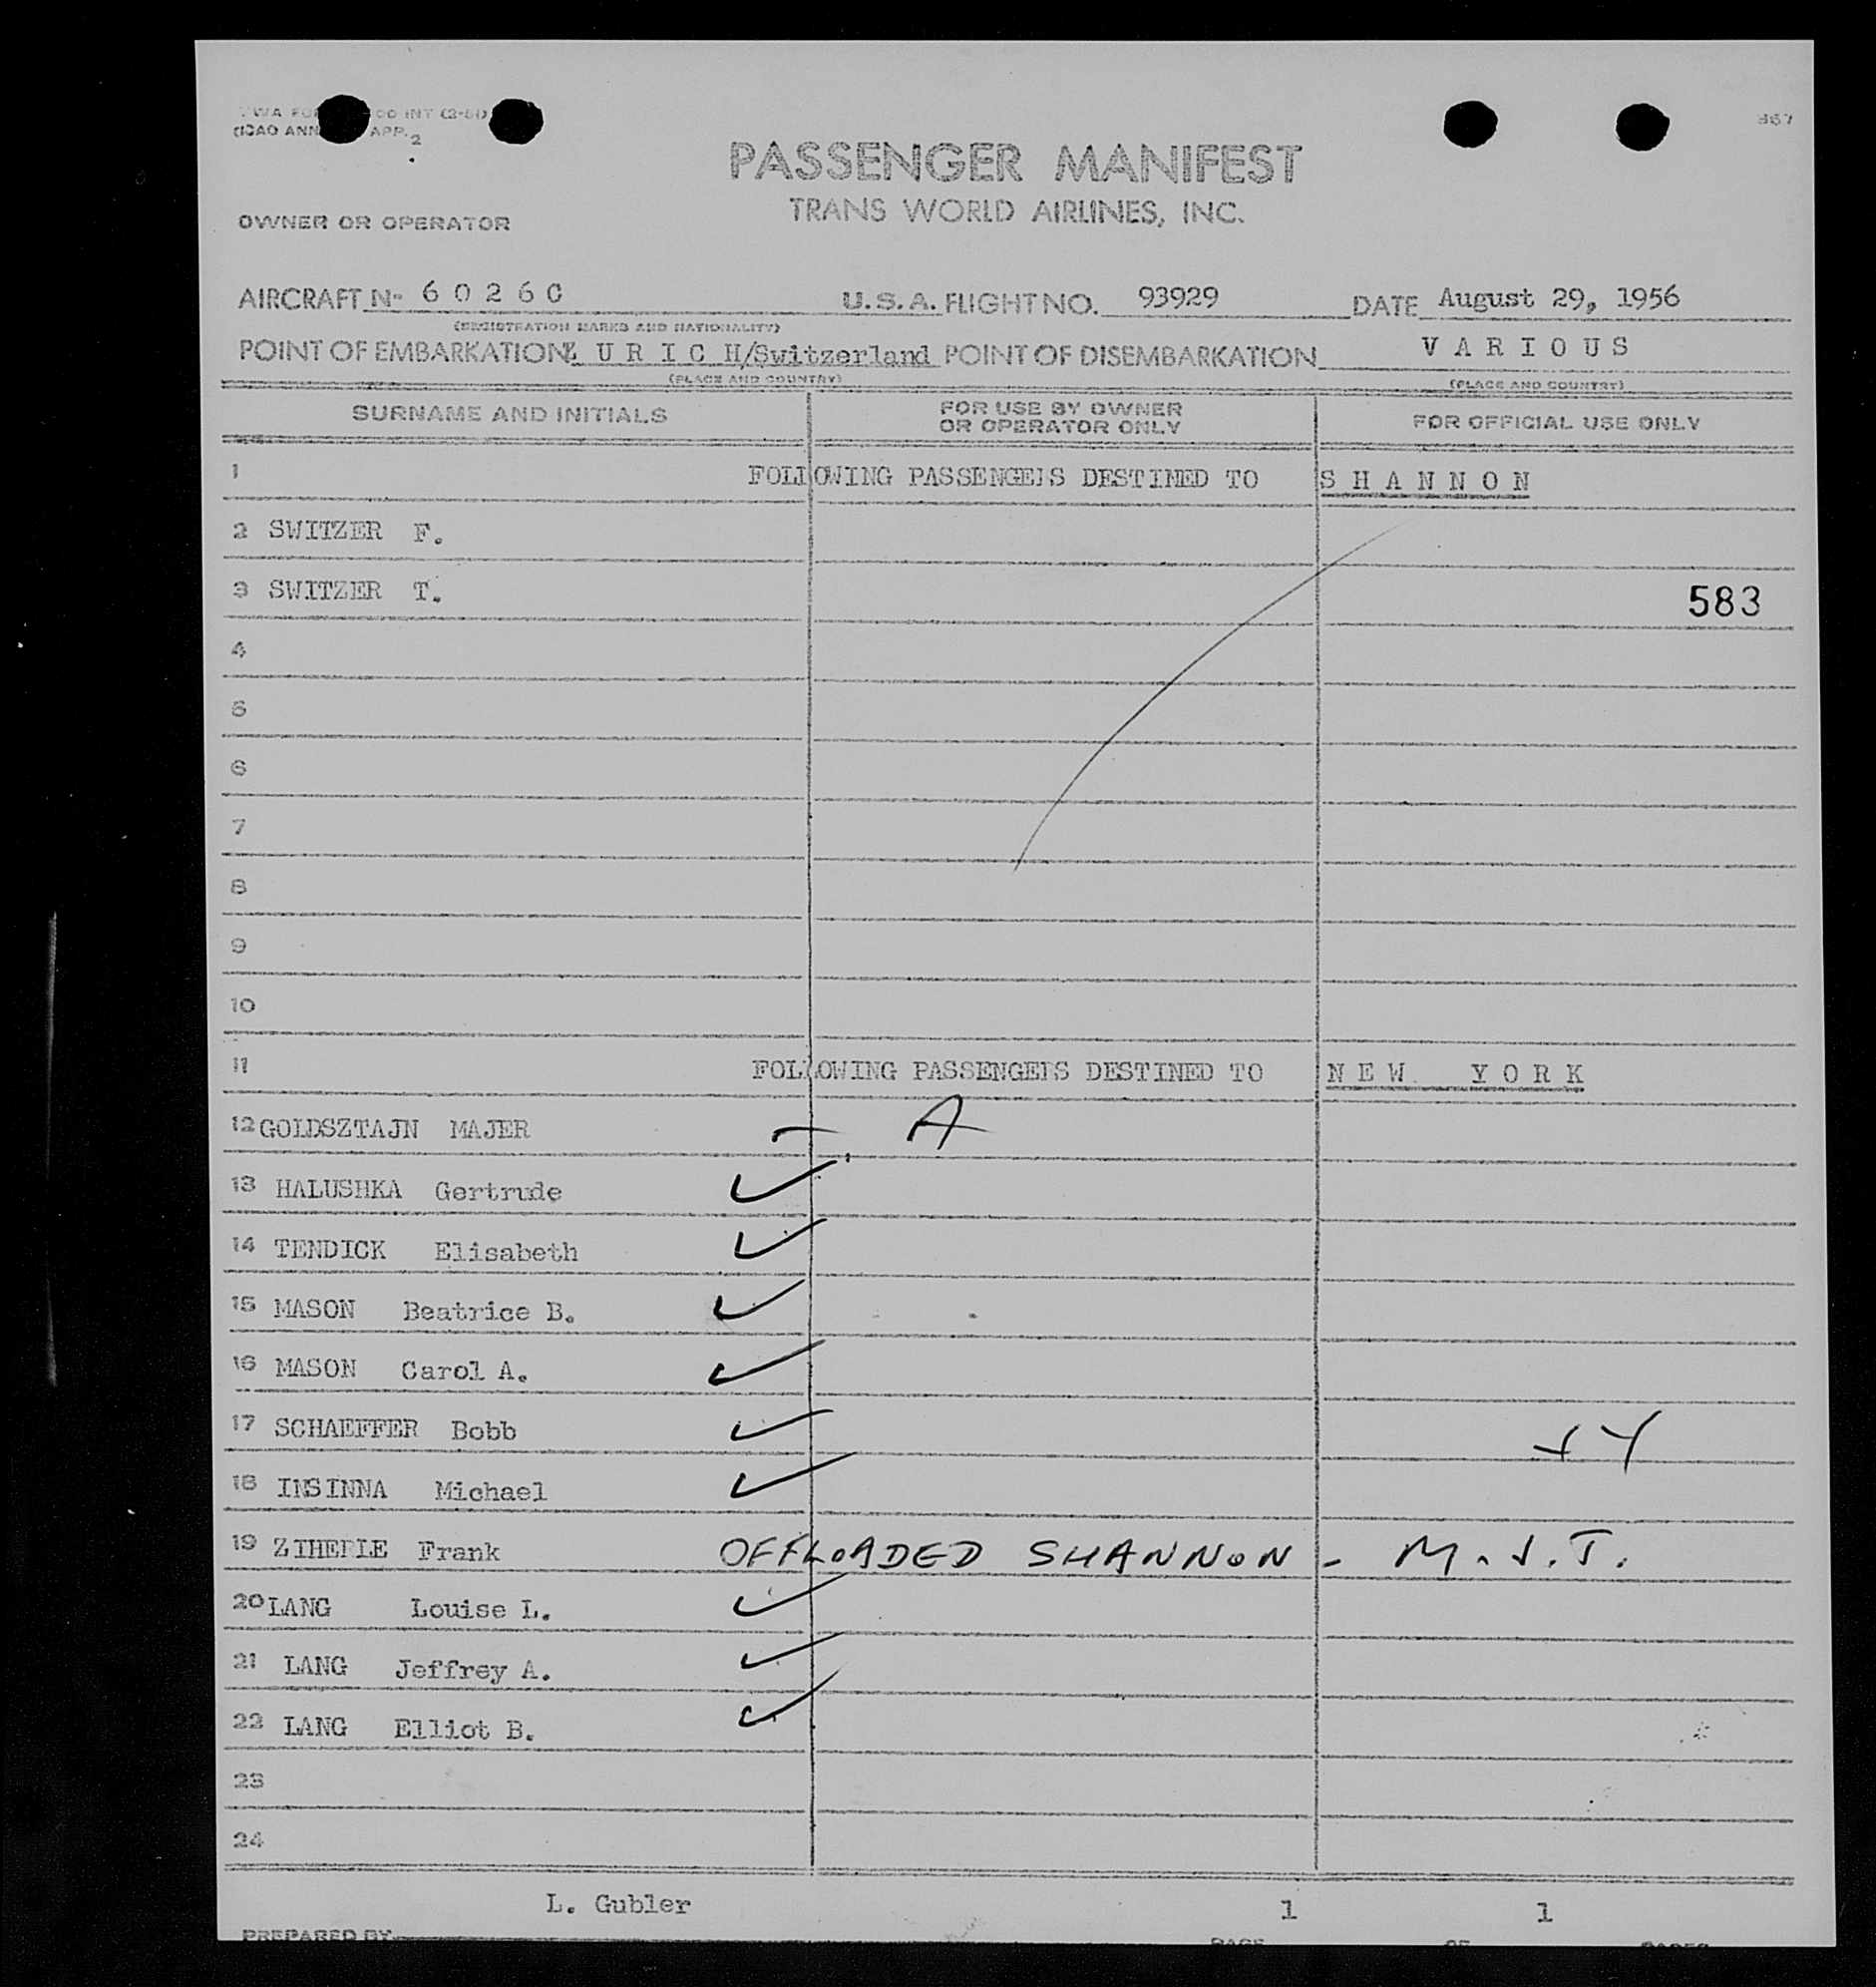 (ICAO ANN APP. 2
867
PASSENGER MANIFEST
TRANS WORLD AIRLINES, INC.
OWNER OR OPERATOR
AIRCRAFT N- 6 0 2 6 C U.S.A. FLIGHT NO. 93929 DATE August 29, 1956
(REGISTRATION MARKS AND NATIONALITY)
POINT OF EMBARKATION Z U R I C H/Switzerland POINT OF DISEMBARKATION V A R I O U S
(PLACE AND COUNTRY) (PLACE AND COUNTRY)
SURNAME AND INITIALS FOR USE BY OWNER OR OPERATOR ONLY FOR OFFICIAL USE ONLY
1 FOLLOWING PASSENGERS DESTINED TO S H A N N O N
2 SWITZER F.
3 SWITZER T. 583
4
5
6
7
8
9
10
11 FOLLOWING PASSENGERS DESTINED TO N E W Y O R K
12 GOLDSZTAJN MAJER A
13 HALUSHKA Gertrude
14 TENDICK Elisabeth
15 MASON Beatrice B.
16 MASON Carol A.
17 SCHAEFFER Bobb
18 INSINNA Michael
19 ZIHERLE Frank OFFLOADED SHANNON - M.J.T.
20 LANG Louise L.
21 LANG Jeffrey A.
22 LANG Elliot B.
23
24
L. Gubler 1 1
PREPARED BY PAGE OF PAGES